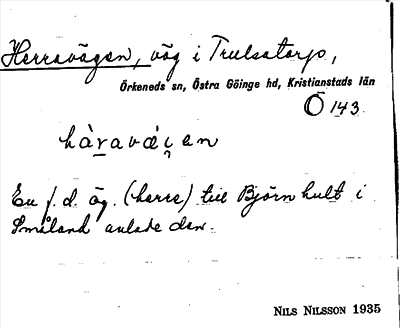 Herravägen, väg i Trulsatorp,
Örkeneds sn, Östra Göinge hd, Kristianstads län
Ö 143.
hàravǽi̯en
En f. d. äg. (herre) till Björnhult i
Småland anlade den.
NILS NILSSON 1935